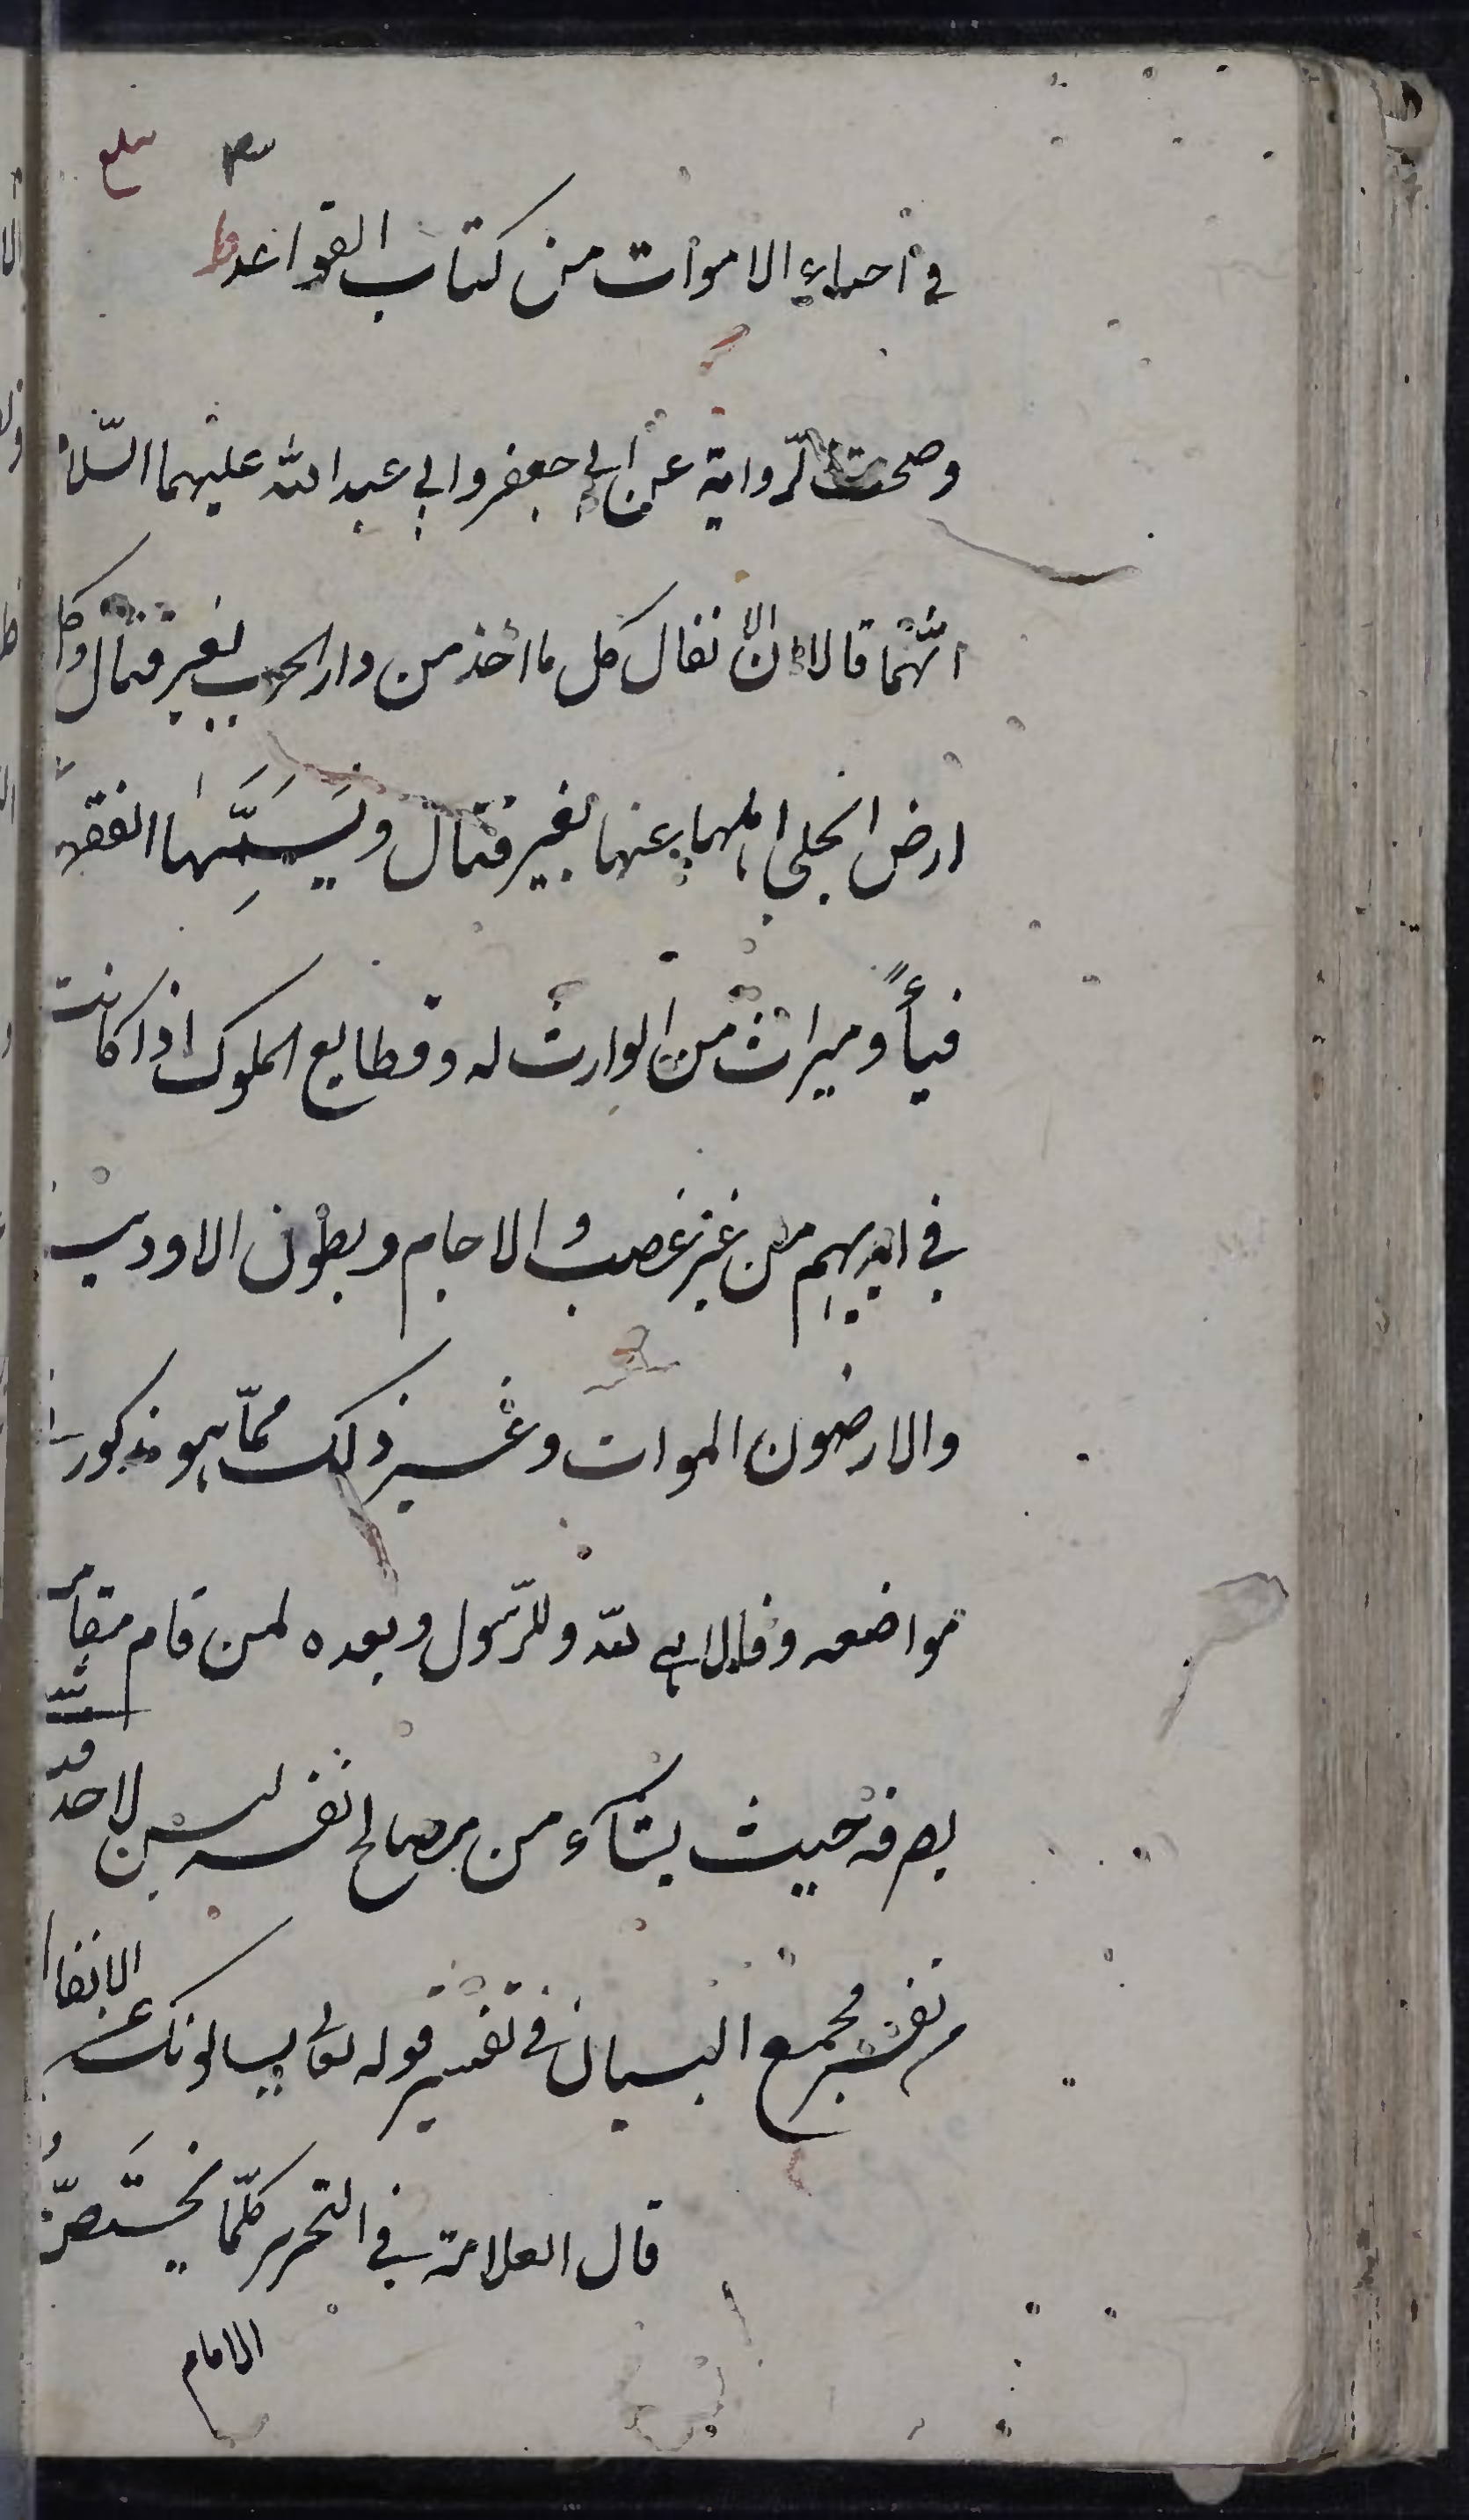 في احياء الاموات من كتاب القواعد
وصحت الرواية عن ابي جعفر وابي عبدالله عليهما السلام
انّهما قالا انّ الانفال كل ما اخذ من دار الحرب بغير قتال وكل
ارض انجلى اهلها عنها بغير قتال ويُسَمِّيها الفقهآء
فيأً وميراث من لا وارث له وقطايع الملوك اذا كانت
في ايديهم من غير غصب والاجام وبطون الاودية
والارضون الموات وغير ذلك ممّا هو مذكور في
مواضعه وقالا هي لله وللرّسول وبعده لمن قام مقامه
يصرفه حيث يشآء من مصالح نفسه ليس لاحد
تفسير مجمع البيان في تفسير قوله تعالى يسالونك عن الانفال
قال العلامة في التحرير كلّما يختصّ
الامام